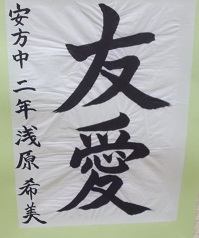 友愛
安方中 二年 浅原 希美